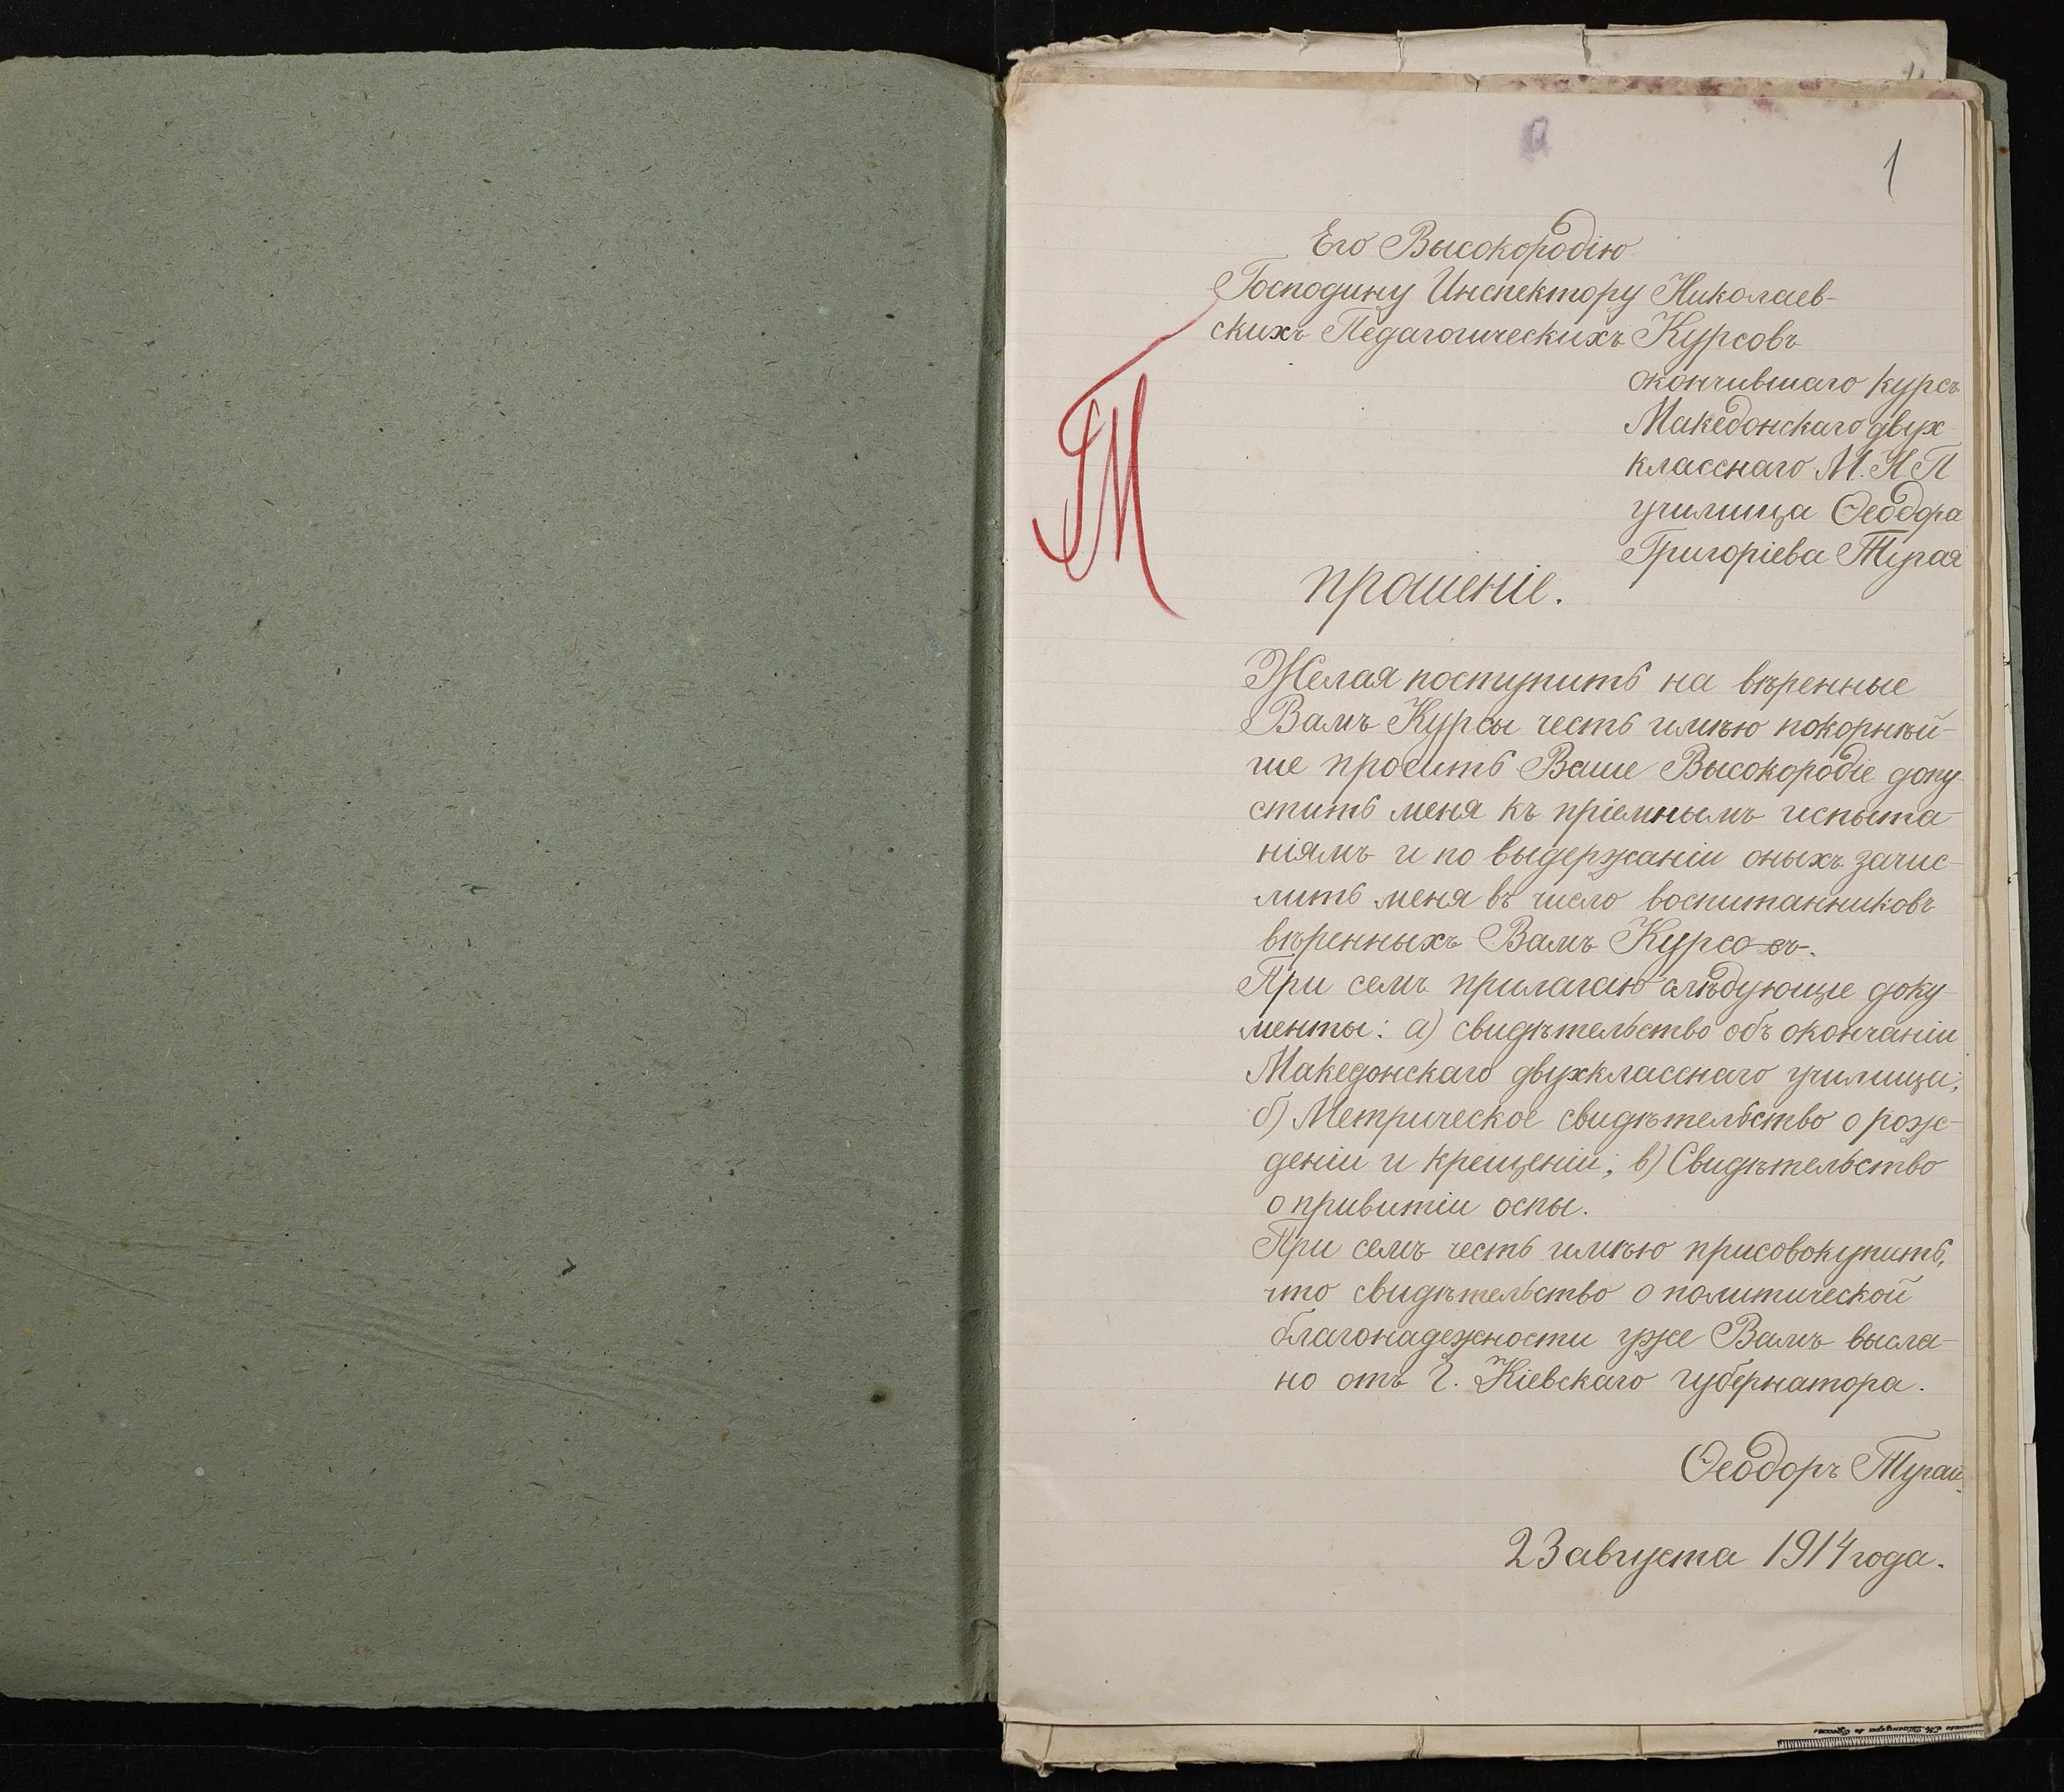 1
Его Высокородію
Господину Инспектору Николаев-
скихъ Педагогическихъ Курсовъ
окончившаго курсъ
Македонскаго двух
класснаго М.Н.П
училища Ѳеодора
Григоріева Тургая
прошеніе.
Желая поступить на ввѣренные
Вамъ Курсы честь имѣю покорнѣй-
ше просить Ваше Высокородіе допу-
стить меня къ пріемнымъ испыта-
ніямъ и по выдержаніи оныхъ зачис-
лить меня въ число воспитанниковъ
ввѣренныхъ Вамъ Курсовъ.
При семъ прилагаю слѣдующіе доку-
менты: а) свидѣтельство объ окончаніи
Македонскаго двухкласснаго училища;
б) Метрическое свидѣтельство о рож-
деніи и крещеніи; в) Свидѣтельство
о привитіи оспы.
При семъ честь имѣю присовокупить,
что свидѣтельство о политической
благонадежности уже Вамъ высла-
но отъ Г. Кіевскаго губернатора.
Ѳеодоръ
23 августа 1914 года.